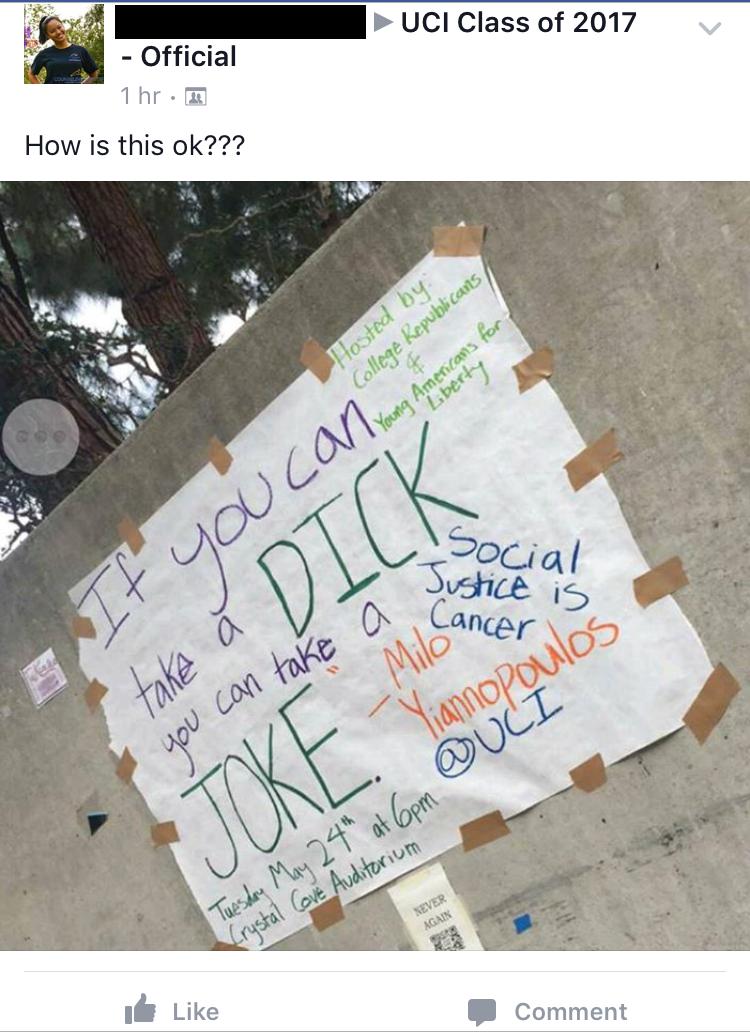 UCI Class of 2017
- Official
1 hr ·
How is this ok???
Hosted by:
College Republicans
&
Young Americans for
Liberty
"If you can
take a DICK
you can take a
JOKE."
- Milo
Yiannopoulos
@UCI
Social
Justice is
Cancer
Tuesday May 24th at 6pm
Crystal Cove Auditorium
NEVER
AGAIN
Like
Comment